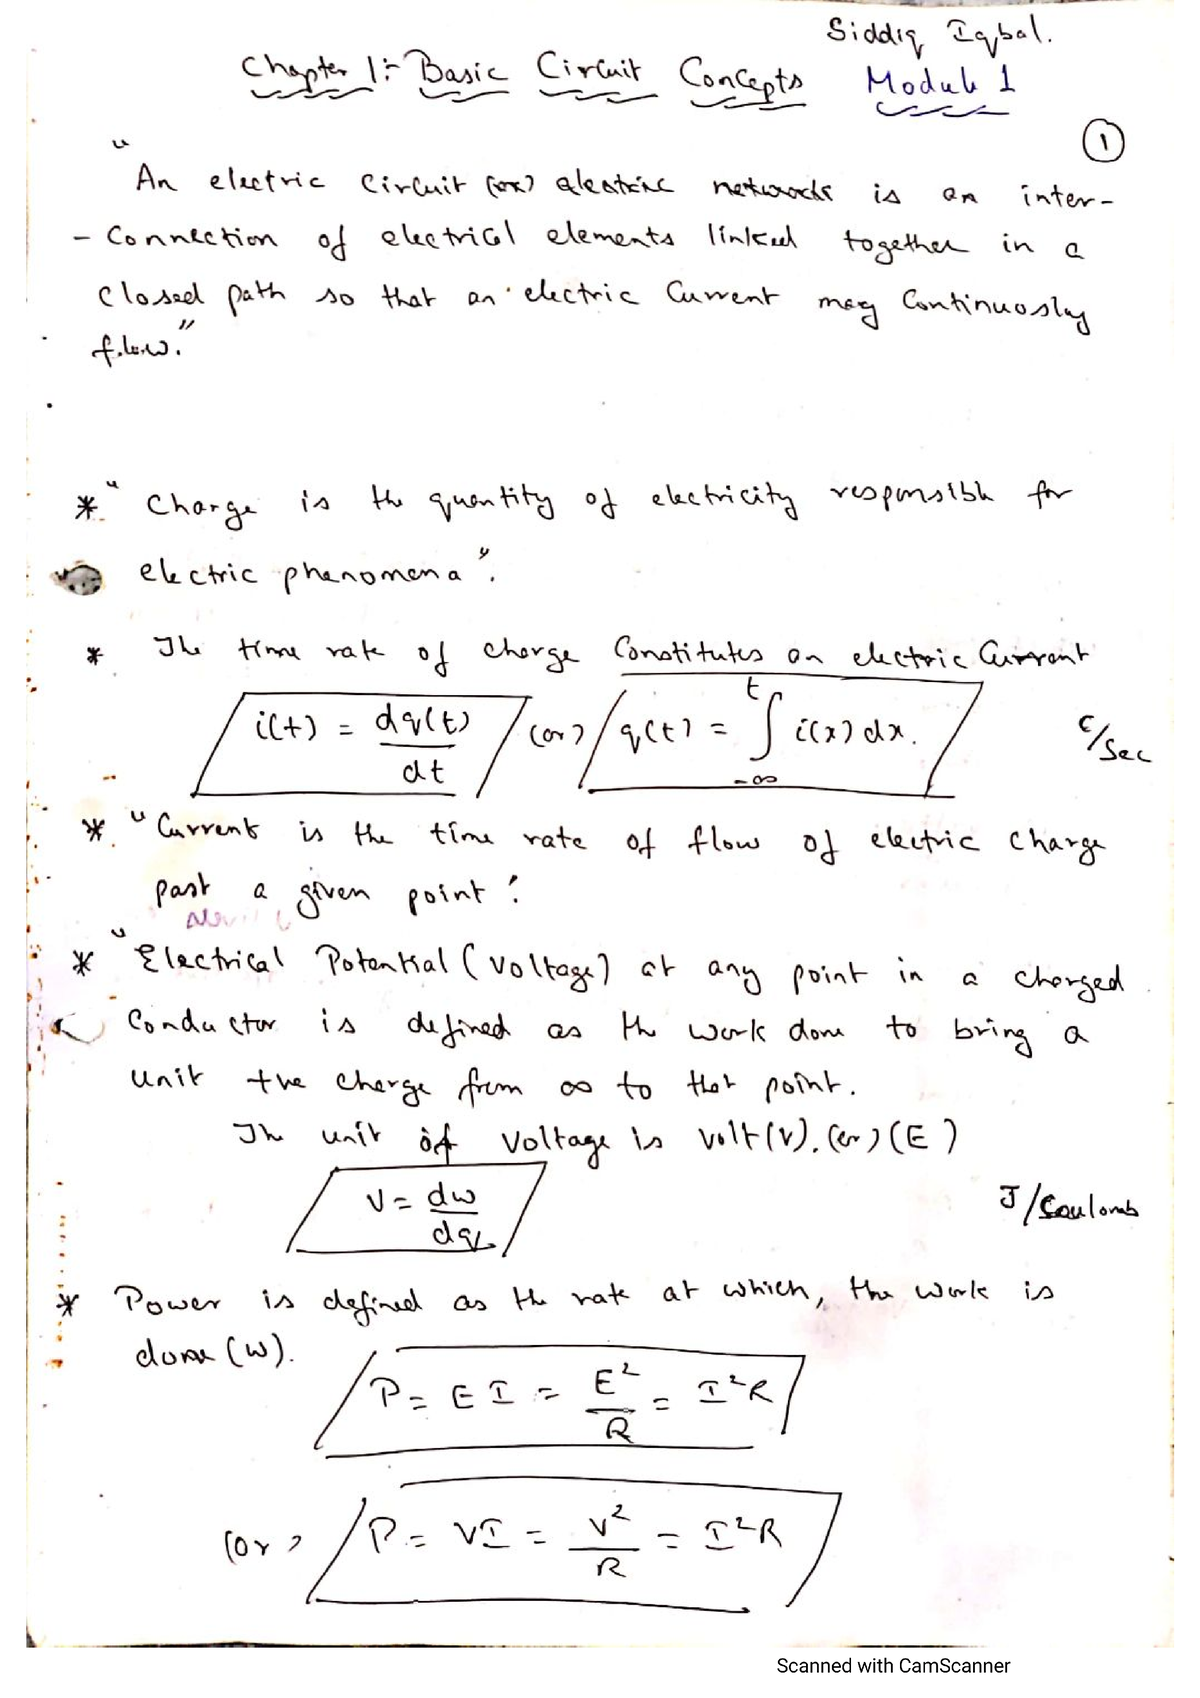 Siddiq Iqbal.
Chapter 1:- Basic Circuit Concepts Module 1
1
"An electric Circuit (or) electric network is an inter-
- Connection of electrical elements linked together in a
Closed path so that an electric Current may Continuosly
flow."
* "Charge is the quantity of electricity responsible for
electric phenomena".
* The time rate of charge Constitutes an electric Current
i(t) = dq(t)/dt (or) q(t) = ∫_{-∞}^{t} i(x) dx. C/Sec
* "Current is the time rate of flow of electric charge
past a given point".
* "Electrical Potential (Voltage) at any point in a charged
Conductor is defined as the work done to bring a
unit +ve charge from ∞ to that point.
The unit of Voltage is volt(V). (or) (E)
V = dw/dq J/Coulomb
* Power is defined as the rate at which, the work is
done (W).
P = EI = E²/R = I²R
(or) P = VI = V²/R = I²R
Scanned with CamScanner